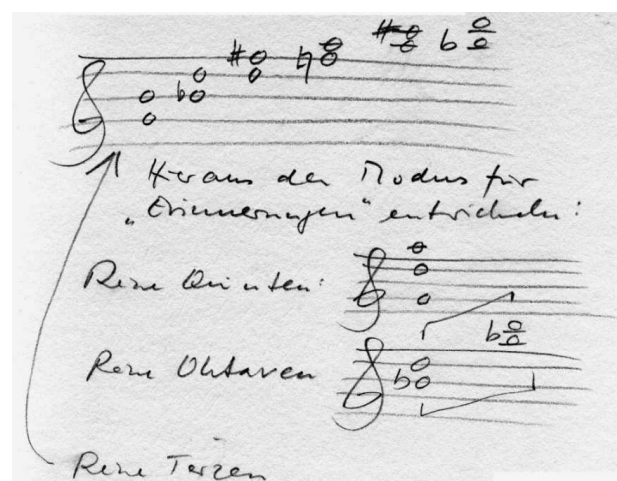 Hieraus den Modus für
„Erinnerungen“ entwickeln:
Reine Quinten:
Reine Oktaven
Reine Terzen